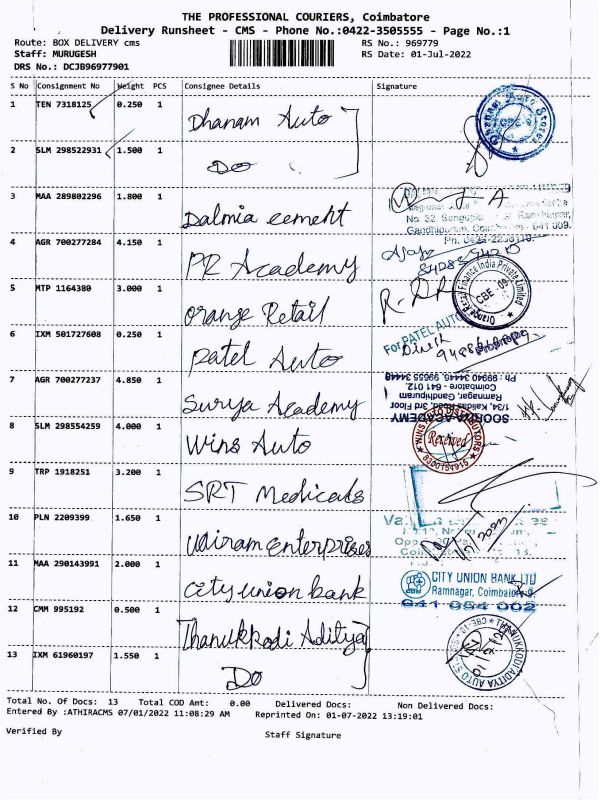 THE PROFESSIONAL COURIERS, Coimbatore
Delivery Runsheet - CMS - Phone No.:0422-3505555 - Page No.:1
Route: BOX DELIVERY cms RS No.: 969779
Staff: MURUGESH RS Date: 01-Jul-2022
DRS No.: DCJB96977901
S No Consignment No Weight PCS Consignee Details Signature
1 TEN 7318125 0.250 1 Dhanam Auto
2 SLM 298522931 1.500 1 Do
3 MAA 289802296 1.800 1 Dalmia cement
No 32
Gandhipuram, 641 009.
4 AGR 700277284 4.150 1 PR Academy
5 MTP 1164380 3.000 1 Orange Retail
Orange Retail Finance India Private Limited
CBE
6 IXM 501727608 0.250 1 Patel Auto
For PATEL AUTO
Dinesh
7 AGR 700277237 4.850 1 Surya Academy
SOORYA ACADEMY
1/34, Kalidas Road, 3rd Floor
Ramnagar, Gandhipuram
Coimbatore - 641 012.
Ph : 99940 34446, 99655 34448
8 SLM 298554259 4.000 1 Wins Auto
WINS AUTO DISTRIBUTORS
Received
9 TRP 1918251 3.200 1 SRT Medicals
10 PLN 2209399 1.650 1 Udiram Enterprises
11 MAA 290143991 2.000 1 City union bank
CITY UNION BANK LTD
Ramnagar, Coimbatore-9.
641 054 002
12 CMM 995192 0.500 1 Thanukkodi Aditya
THANUKKODI ADITYA AUTO
13 IXM 61960197 1.550 1 Do
Total No. Of Docs: 13 Total COD Amt: 0.00 Delivered Docs: Non Delivered Docs:
Entered By :ATHIRACMS 07/01/2022 11:08:29 AM Reprinted On: 01-07-2022 13:19:01
Verified By Staff Signature